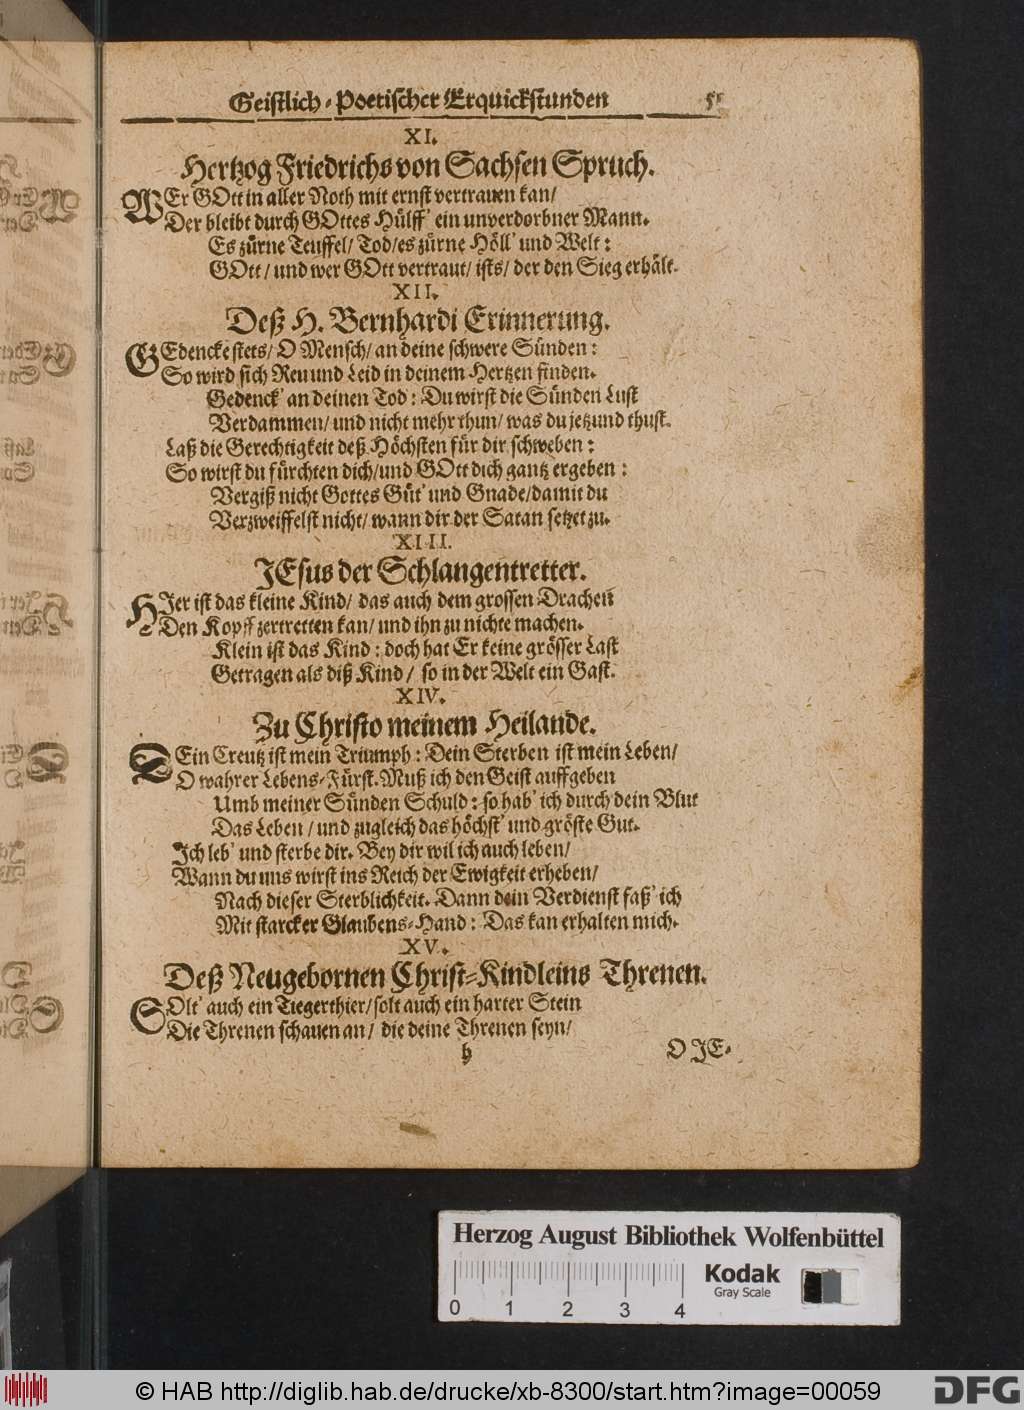 Geistlich-Poetischer Erquickstunden
XI.
Hertzog Friedrichs von Sachsen Spruch.
WEr GOtt in aller Noth mit ernst vertrauen kan/
Der bleibt durch GOttes Hülff' ein unverdorbner Mann.
Es zürne Teuffel/ Tod/es zürne Höll' und Welt:
GOtt/ und wer GOtt vertraut/ ists/ der den Sieg erhält.
XII.
Deß H. Bernhardi Erinnerung.
GEdencke stets/ O Mensch/ an deine schwere Sünden:
So wird sich Reu und Leid in deinem Hertzen finden.
Gedenck' an deinen Tod: Du wirst die Sünden Lust
Verdammen/ und nicht mehr thun/ was du jetzund thust.
Laß die Gerechtigkeit deß Höchsten für dir schweben:
So wirst du fürchten dich/und GOtt dich gantz ergeben:
Vergiß nicht Gottes Güt' und Gnade/damit du
Verzweiffelst nicht/ wann dir der Satan setzet zu.
XIII.
JEsus der Schlangentretter.
HJer ist das kleine Kind/ das auch dem grossen Drachen
Den Kopff zertretten kan/ und ihn zu nichte machen.
Klein ist das Kind: doch hat Er keine grösser Last
Getragen als diß Kind/ so in der Welt ein Gast.
XIV.
Zu Christo meinem Heilande.
DEin Creutz ist mein Triumph: Dein Sterben ist mein Leben/
O wahrer Lebens-Fürst. Muß ich den Geist auffgeben
Umb meiner Sünden Schuld: so hab' ich durch dein Blut
Das Leben/ und zugleich das höchst' und gröste Gut.
Jch leb' und sterbe dir. Bey dir wil ich auch leben/
Wann du uns wirst ins Reich der Ewigkeit erheben/
Nach dieser Sterblichkeit. Dann dein Verdienst faß' ich
Mit starcker Glaubens-Hand: Das kan erhalten mich.
XV.
Deß Neugebornen Christ-Kindleins Threnen.
SOlt' auch ein Tiegerthier/solt auch ein harter Stein
Die Threnen schauen an/ die deine Threnen seyn/
h
O JE-
Herzog August Bibliothek Wolfenbüttel
0 1 2 3 4
Kodak
Gray Scale
© HAB http://diglib.hab.de/drucke/xb-8300/start.htm?image=00059
DFG